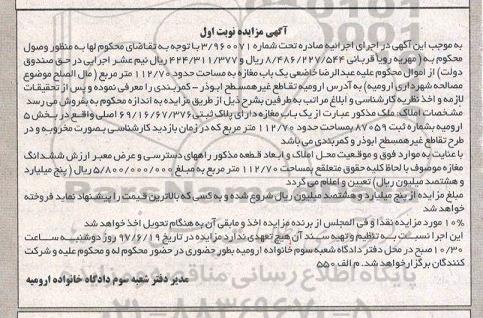 آگهی مزایده نوبت اول
به موجب این آگهی در اجرای اجرائیه صادره تحت شماره ۳/۹۶۰۰۷۱ با توجه به تقاضای محکوم لها به منظور وصول
محکوم به ( مهریه رویا قربانی ۸/۴۸۶/۲۲۷/۵۴۴ ریال و ۴۲۴/۳۱۱/۳۷۷ ریال نیم عشر اجرایی در حق صندوق
دولت) از اموال محکوم علیه عبدالرضا خاضعی یک باب مغازه به مساحت حدود ۱۱۲/۷۰ متر مربع ( مال الصلح موضوع
مصالحه شهرداری ارومیه) به آدرس ارومیه تقاطع غیر همسطح ابوذر - کمربندی را معرفی نموده و پس از تحقیقات
لازمه و اخذ نظریه کارشناسی و ابلاغ مراتب به طرفین بشرح ذیل از طریق مزایده به اندازه محکوم به فروش می رسد
مشخصات املاک: ملک مذکور عبارت از یک باب مغازه دارای پلاک ثبتی ۶۹/۱۶/۶۷/۳۷۶ اصلی واقع در بخش ۵
ارومیه بشماره ثبت ۸۷۰۵۹ بمساحت حدود ۱۱۲/۷۰ متر مربع که در زمان بازدید کارشناسی بصورت مخروبه و در
طرح تقاطع غیر همسطح ابوذر و کمربندی می باشد
با عنایت به موارد فوق و موقعیت محل املاک و ابعاد قطعه مذکور راههای دسترسی و عرض معبر ارزش ششدانگ
مغازه موصوف با لحاظ کلیه حقوق متعلقع بمساحت ۱۱۲/۷۰ متر مربع به مبلغ ۵/۸۰۰/۰۰۰/۰۰۰ ریال ( پنج میلیارد
و هشتصد میلیون ریال) تعیین و اعلام می گردد
مبلغ مزایده از پنج میلیارد و هشتصد میلیون ریال شروع شده و به کسی که بالاترین قیمت را پیشنهاد نماید فروخته
خواهد شد
۱۰% مورد مزایده نقدا و فی المجلس از برنده مزایده اخذ و مابقی آن به هنگام تحویل اخذ خواهد شد
این اجرا نسبت به تنظیم و تهیه سند آن هیچ تعهدی ندارد مزایده در تاریخ ۹۷/۶/۱۹ روز دوشنبه ساعت
۱۰/۳۰ صبح در محل دفتر دادگاه شعبه سوم خانواده ارومیه بطور حضوری در حضور محکوم له و محکوم علیه و شرکت
کنندگان برگزار خواهد شد. م الف ۵۵۰
مدیر دفتر شعبه سوم دادگاه خانواده ارومیه
پایگاه اطلاع رسانی مناقصه
۰۲۱-۸۸۳۴۹۶۷۰-۵